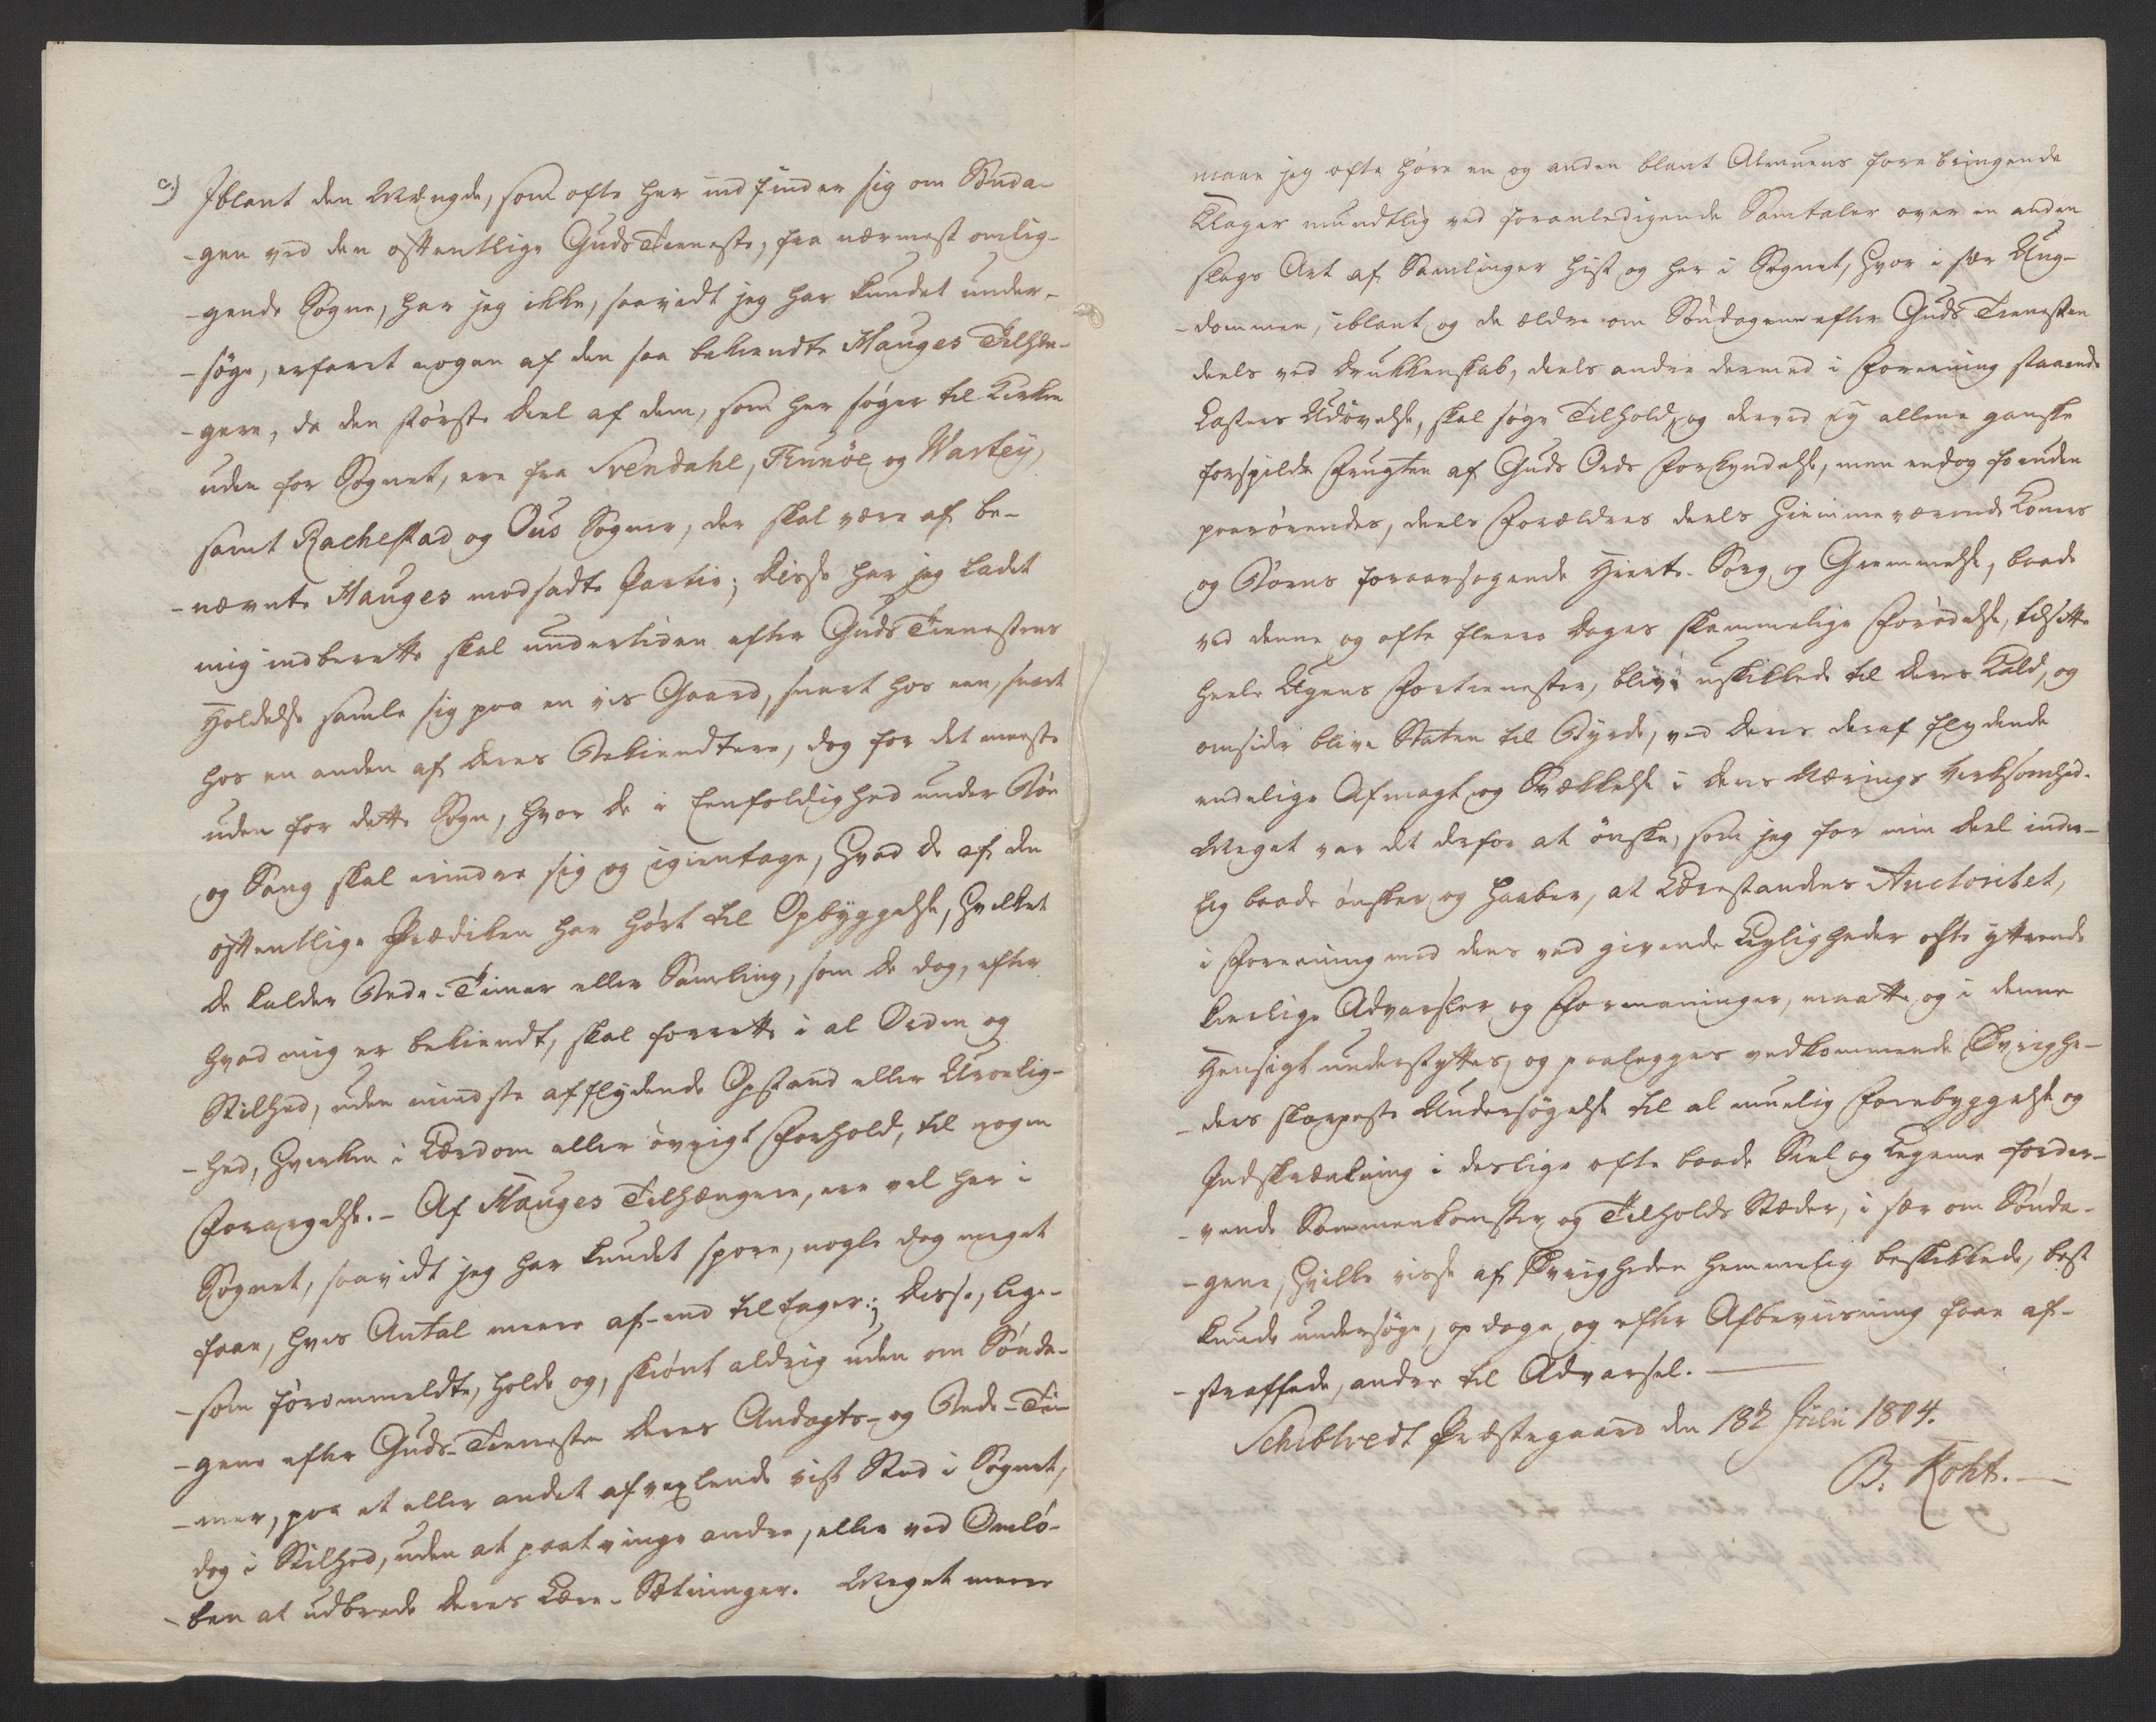 c.) Iblant den Mængde, som ofte her indfinder sig om Sønda-
-gen ved den offentlige Guds Tieneste, fra nærmest omlig-
-gende Sogne, har jeg ikke, saavidt jeg har kundet under-
-søge, erfaret nogen af den saa bekiendte Hauges Tilhæn-
-gere, da den største Deel af dem, som her søger til Kirken
uden for Sognet, ere fra Svendahl, Trunöe og Varteÿ,
samt Rachestad og Ous Sogner, der skal være af be-
-nævnte Hauges modsadte Partie; Disse har jeg ladet
mig indberette skal undertiden efter Guds Tienestens
Holdelse samle sig paa en vis Gaard, snart hos een, snart
hos en anden af deres Bekiendtere, dog for det meeste
uden for dette Sogn, hvor de i Eenfoldighed under Bøn
og Sang skal erindre sig og igientage, hvad de af den
offentlige Prædiken har hørt til Opbyggelse, hvilket
de kalder Bede-Timer eller Samling, som de dog, efter
hvad mig er bekiendt, skal forrette i al Orden og
Stilhed, uden mindste afflydende Opstand eller Uroelig-
-hed, hverken i Lærdom eller øvrigt Forhold, til nogen
Forargelse. - Af Hauges Tilhængere, ere vel her i
Sognet, saavidt jeg har kundet spore, nogle dog meget
faae, hvis Antal meere af- end tiltager; Disse, lige-
-som førommeldte, holde og, skiønt aldrig uden om Sønda-
-gene efter Guds-Tienesten deres Andagts- og Bede-Ti-
-mer, paa et eller andet afvexlende vist Sted i Sognet,
dog i Stilhed, uden at paatvinge andre, eller ved Omlø-
-ben at udbrede deres Lære-Sætninger. Meget meere
maae jeg ofte høre en og anden blant Almuens forebringende
Klager mundtlig ved foranledigende Samtaler over en anden
slags Art af Samlinger hist og her i Sognet, hvor i sær Ung-
-dommen, iblant og de ældre om Søndagene efter Guds Tienesten
deels ved Drukkenskab, deels andre dermed i Foreening staaende
Lasters Udøvelse, skal søge Tilhold, og derved ey allene ganske
forspilde Frugten af Guds Ords Forkyndelse, men endog foruden
paarørendes, deels Forældres deels hiemmeværende Koners
og Børns foraarsagende Hierte-Sorg og Græmmelse, baade
ved denne og ofte fleere Dages skammelige Forødelse, tilsætte
heele Ugens Fortienester, blive uskikkede til deres Kald, og
omsider blive Staten til Byrde, ved deres deraf flydende
endelige Afmagt og Svækkelse i deres Nærings Virksomhed.
Meget var det derfor at ønske, som jeg for min Deel inder-
lig baade ønsker og haaber, at Lærestandens Auctoritet,
i Foreening med dens ved givende Leyligheder ofte yttrende
kierlige Advarsler og Formaninger, maatte og i denne
Hensigt understyttes, og paalegges vedkommende Øvrighe-
-ders skarpeste Undersøgelse til al muelig Forebyggelse og
Indskrænkning i deslige ofte baade Siel og Legeme forder-
-vende Sammenkomster og Tilholds Stæder, i sær om Sønda-
-gene, hvilke visse af Øvrigheden hemmelig beskikkede, best
kunde undersøge, opdage og efter Afbeviisning faae af-
-straffede, andre til Advarsel. —
Schibtvedt Præstegaard den 18de Julii 1804.
B. Koht. —